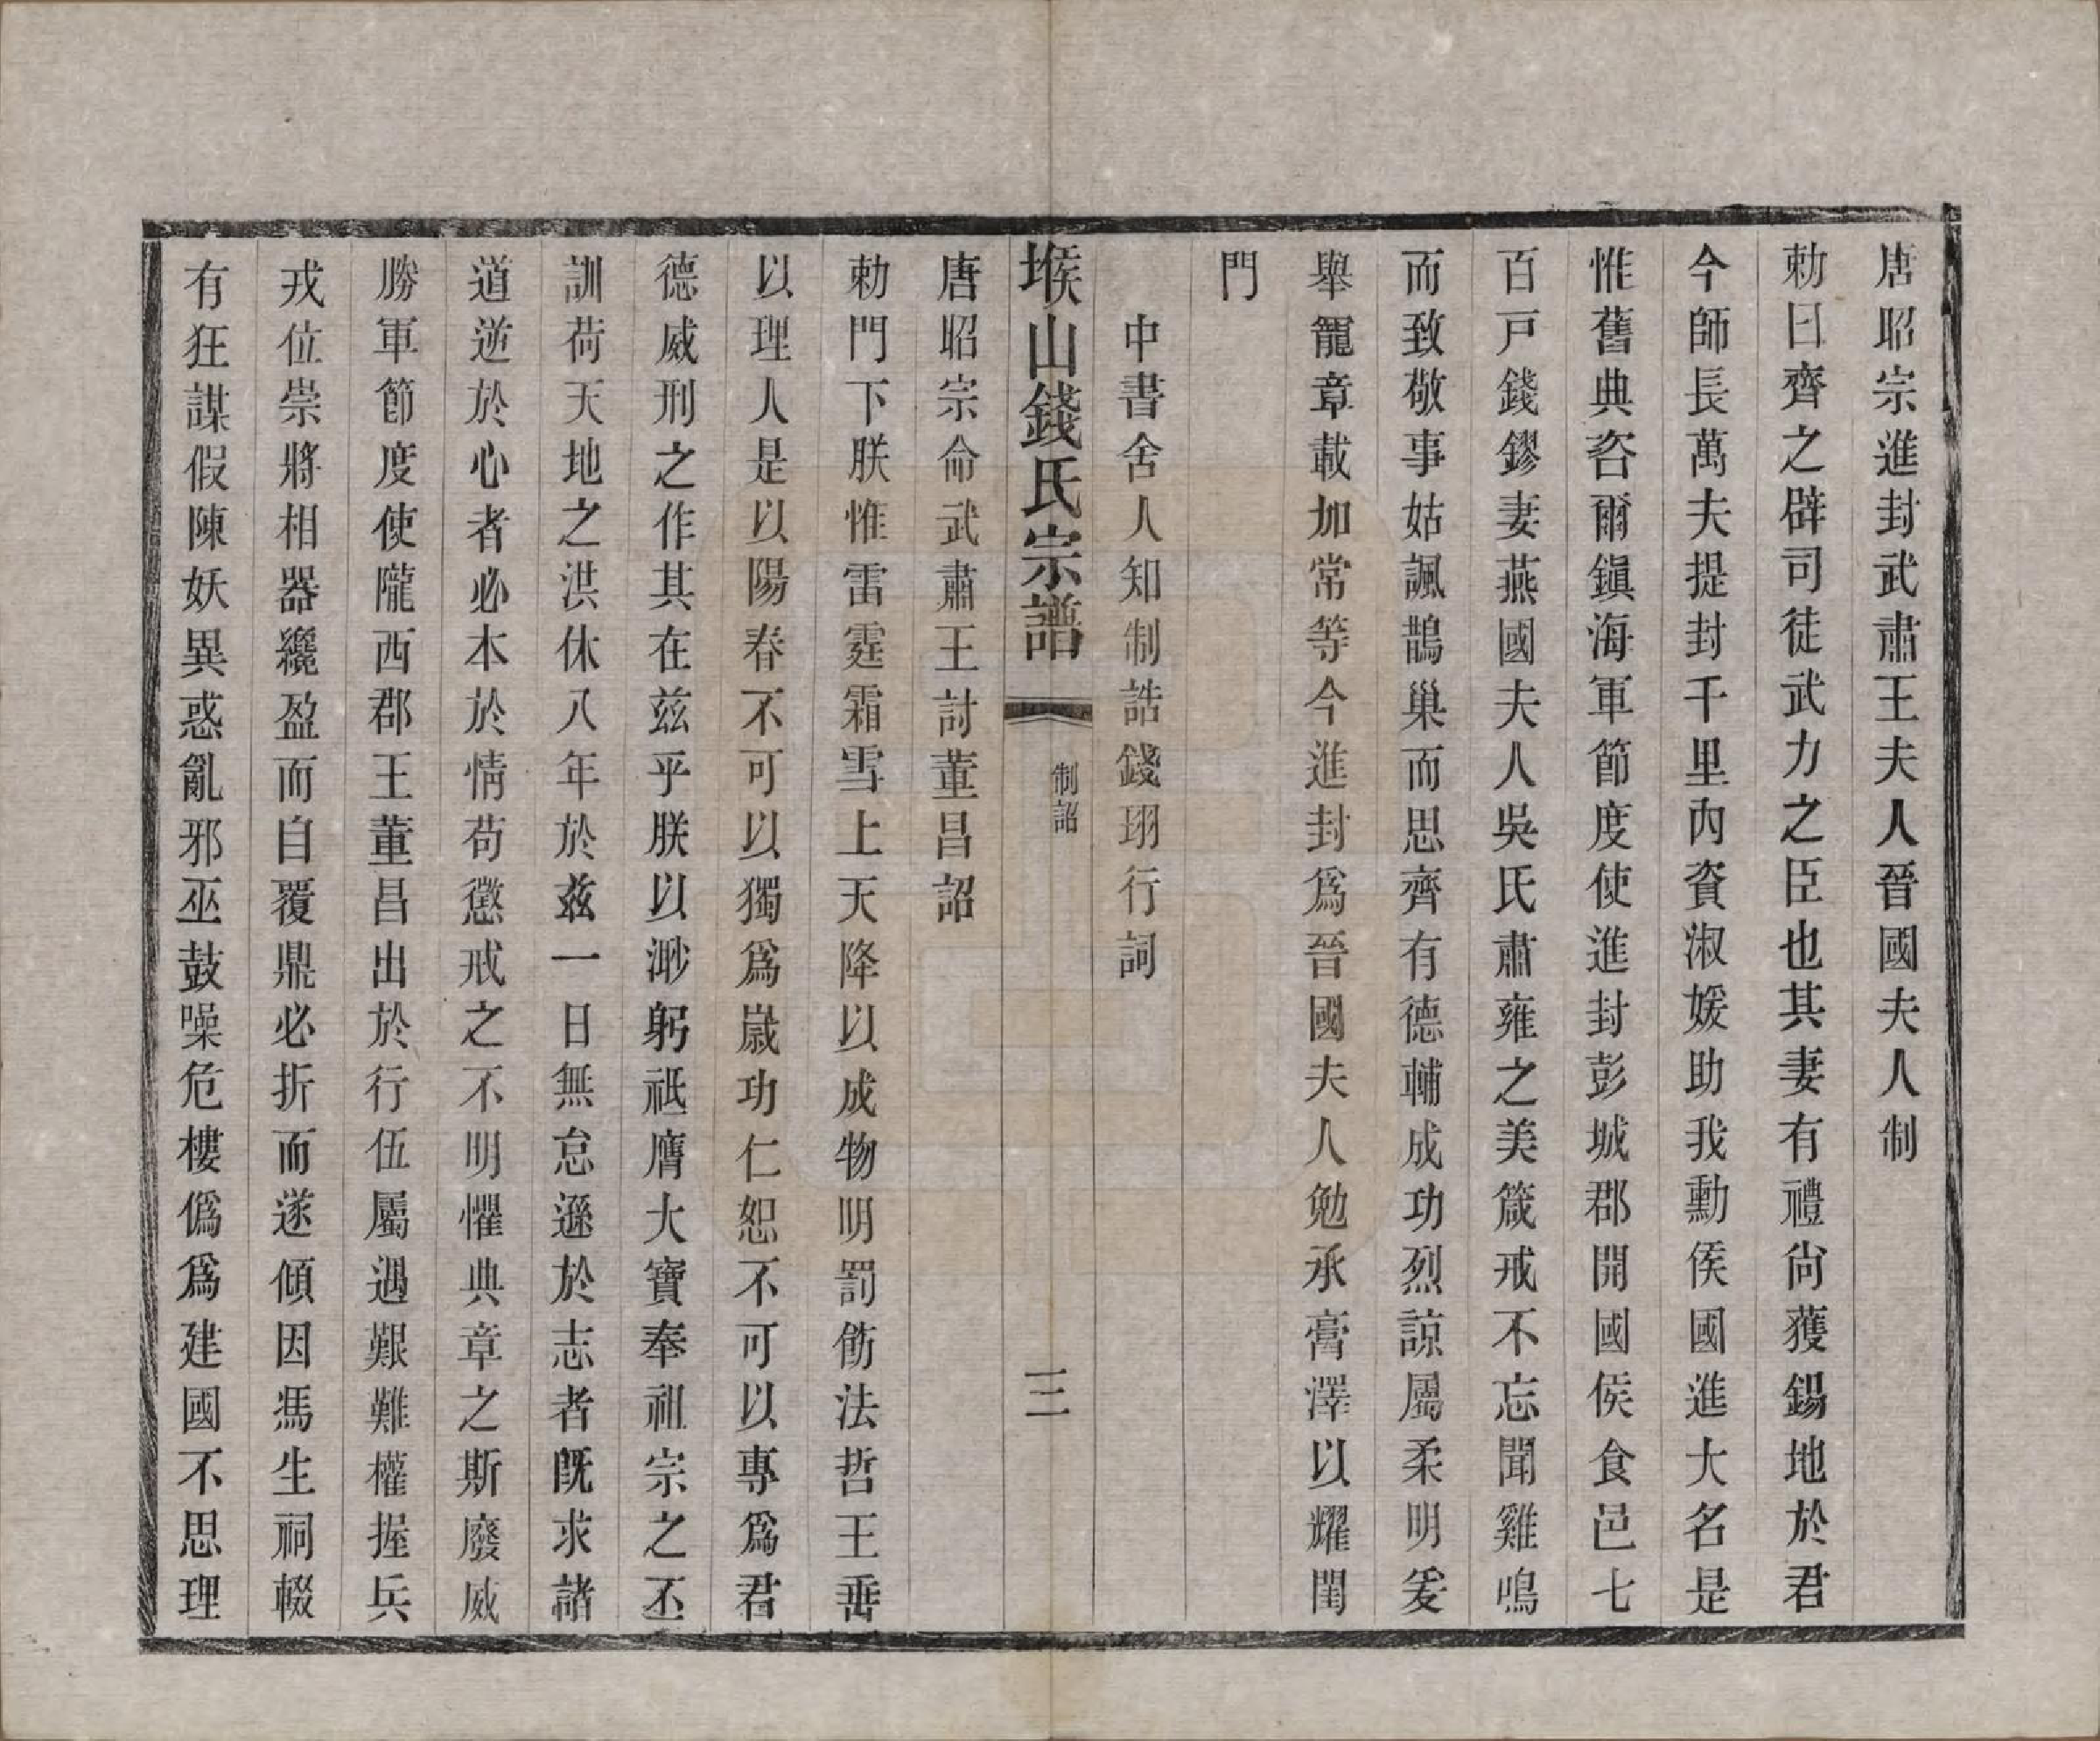 唐昭宗進封武肅王夫人晉國夫人制
勅曰齊之辟司徒武力之臣也其妻有禮尙獲錫地於君
今師長萬夫提封千里內資淑媛助我勳侯國進大名是
惟舊典咨爾鎭海軍節度使進封彭城郡開國侯食邑七
百戸錢鏐妻燕國夫人吳氏肅雍之美箴戒不忘聞雞鳴
而致敬事姑諷鵲巢而思齊有德輔成功烈諒屬柔明爰
舉寵章載加常等今進封爲晉國夫人勉承膏澤以耀閨
門
中書舍人知制誥錢珝行詞
堠山錢氏宗譜 制詔 三
唐昭宗命武肅王討董昌詔
勅門下朕惟雷霆霜雪上天降以成物明罰飭法哲王垂
以理人是以陽春不可以獨爲嵗功仁恕不可以專爲君
德威刑之作其在兹乎朕以渺躬祗膺大寶奉祖宗之丕
訓荷天地之洪休八年於兹一日無怠遜於志者旣求諸
道逆於心者必本於情苟懲戒之不明懼典章之斯廢威
勝軍節度使隴西郡王董昌出於行伍屬遇艱難權握兵
戎位崇將相器纔盈而自覆鼎必折而遂傾因馮生祠輟
有狂謀假陳妖異惑亂邪巫鼓噪危樓僞爲建國不思理